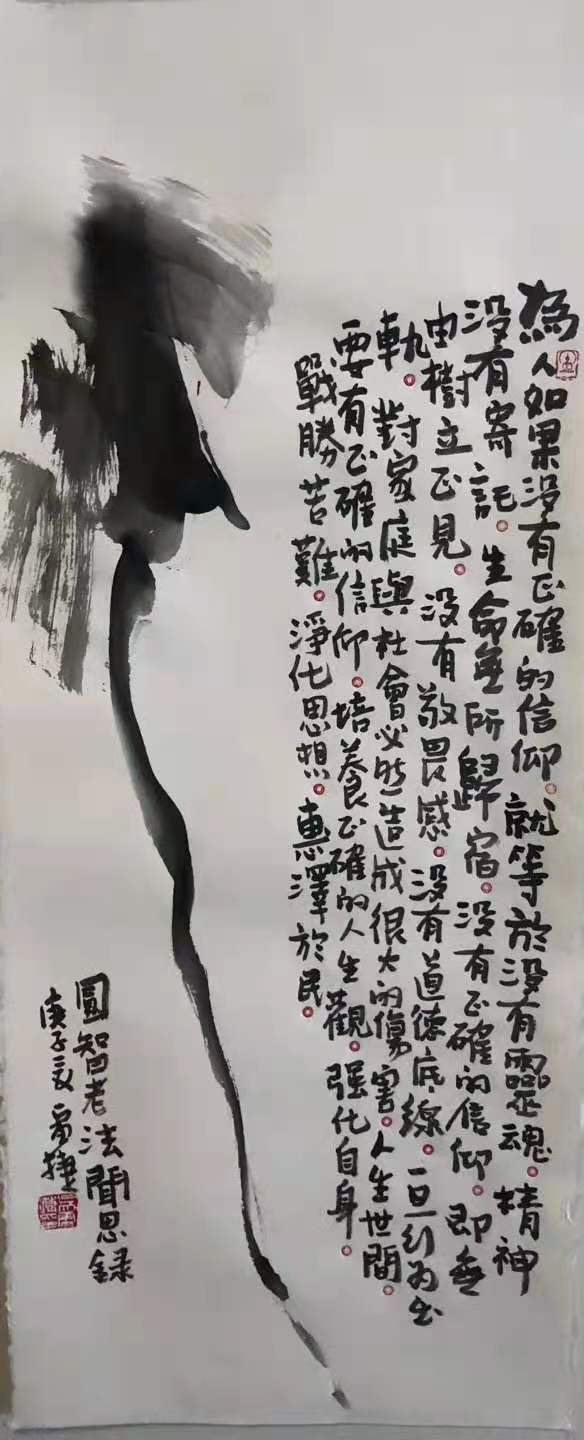 為人如果没有正確的信仰。就等於没有靈魂。精神
没有寄託。生命無所歸宿。没有正確的信仰。即無
由樹立正見。没有敬畏感。没有道德底線。一旦行為出
軌。對家庭與社會必然造成很大的傷害。人生世間。
要有正確的信仰。培養正確的人生觀。强化自身。
戰勝苦難。淨化思想。惠澤於民。
圓智老法聞思録
庚子